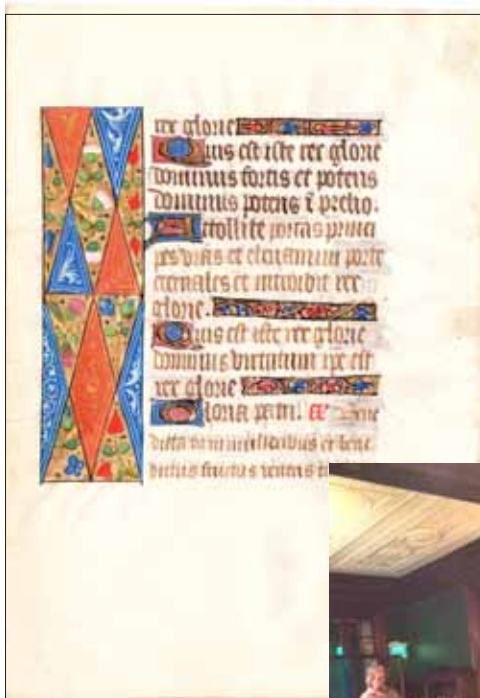 rex glorie
Quis est iste rex glorie
dominus fortis et potens
dominus potens ī prelio.
Attollite portas princi
pes vr̄as et elevamini porte
eternales et introibit rex
glorie.
Quis est iste rex glorie
dominus virtutum ipe est
rex glorie
Gloria patri. Bene
dicta tu in mulieribus et bene
dictus fructus ventris